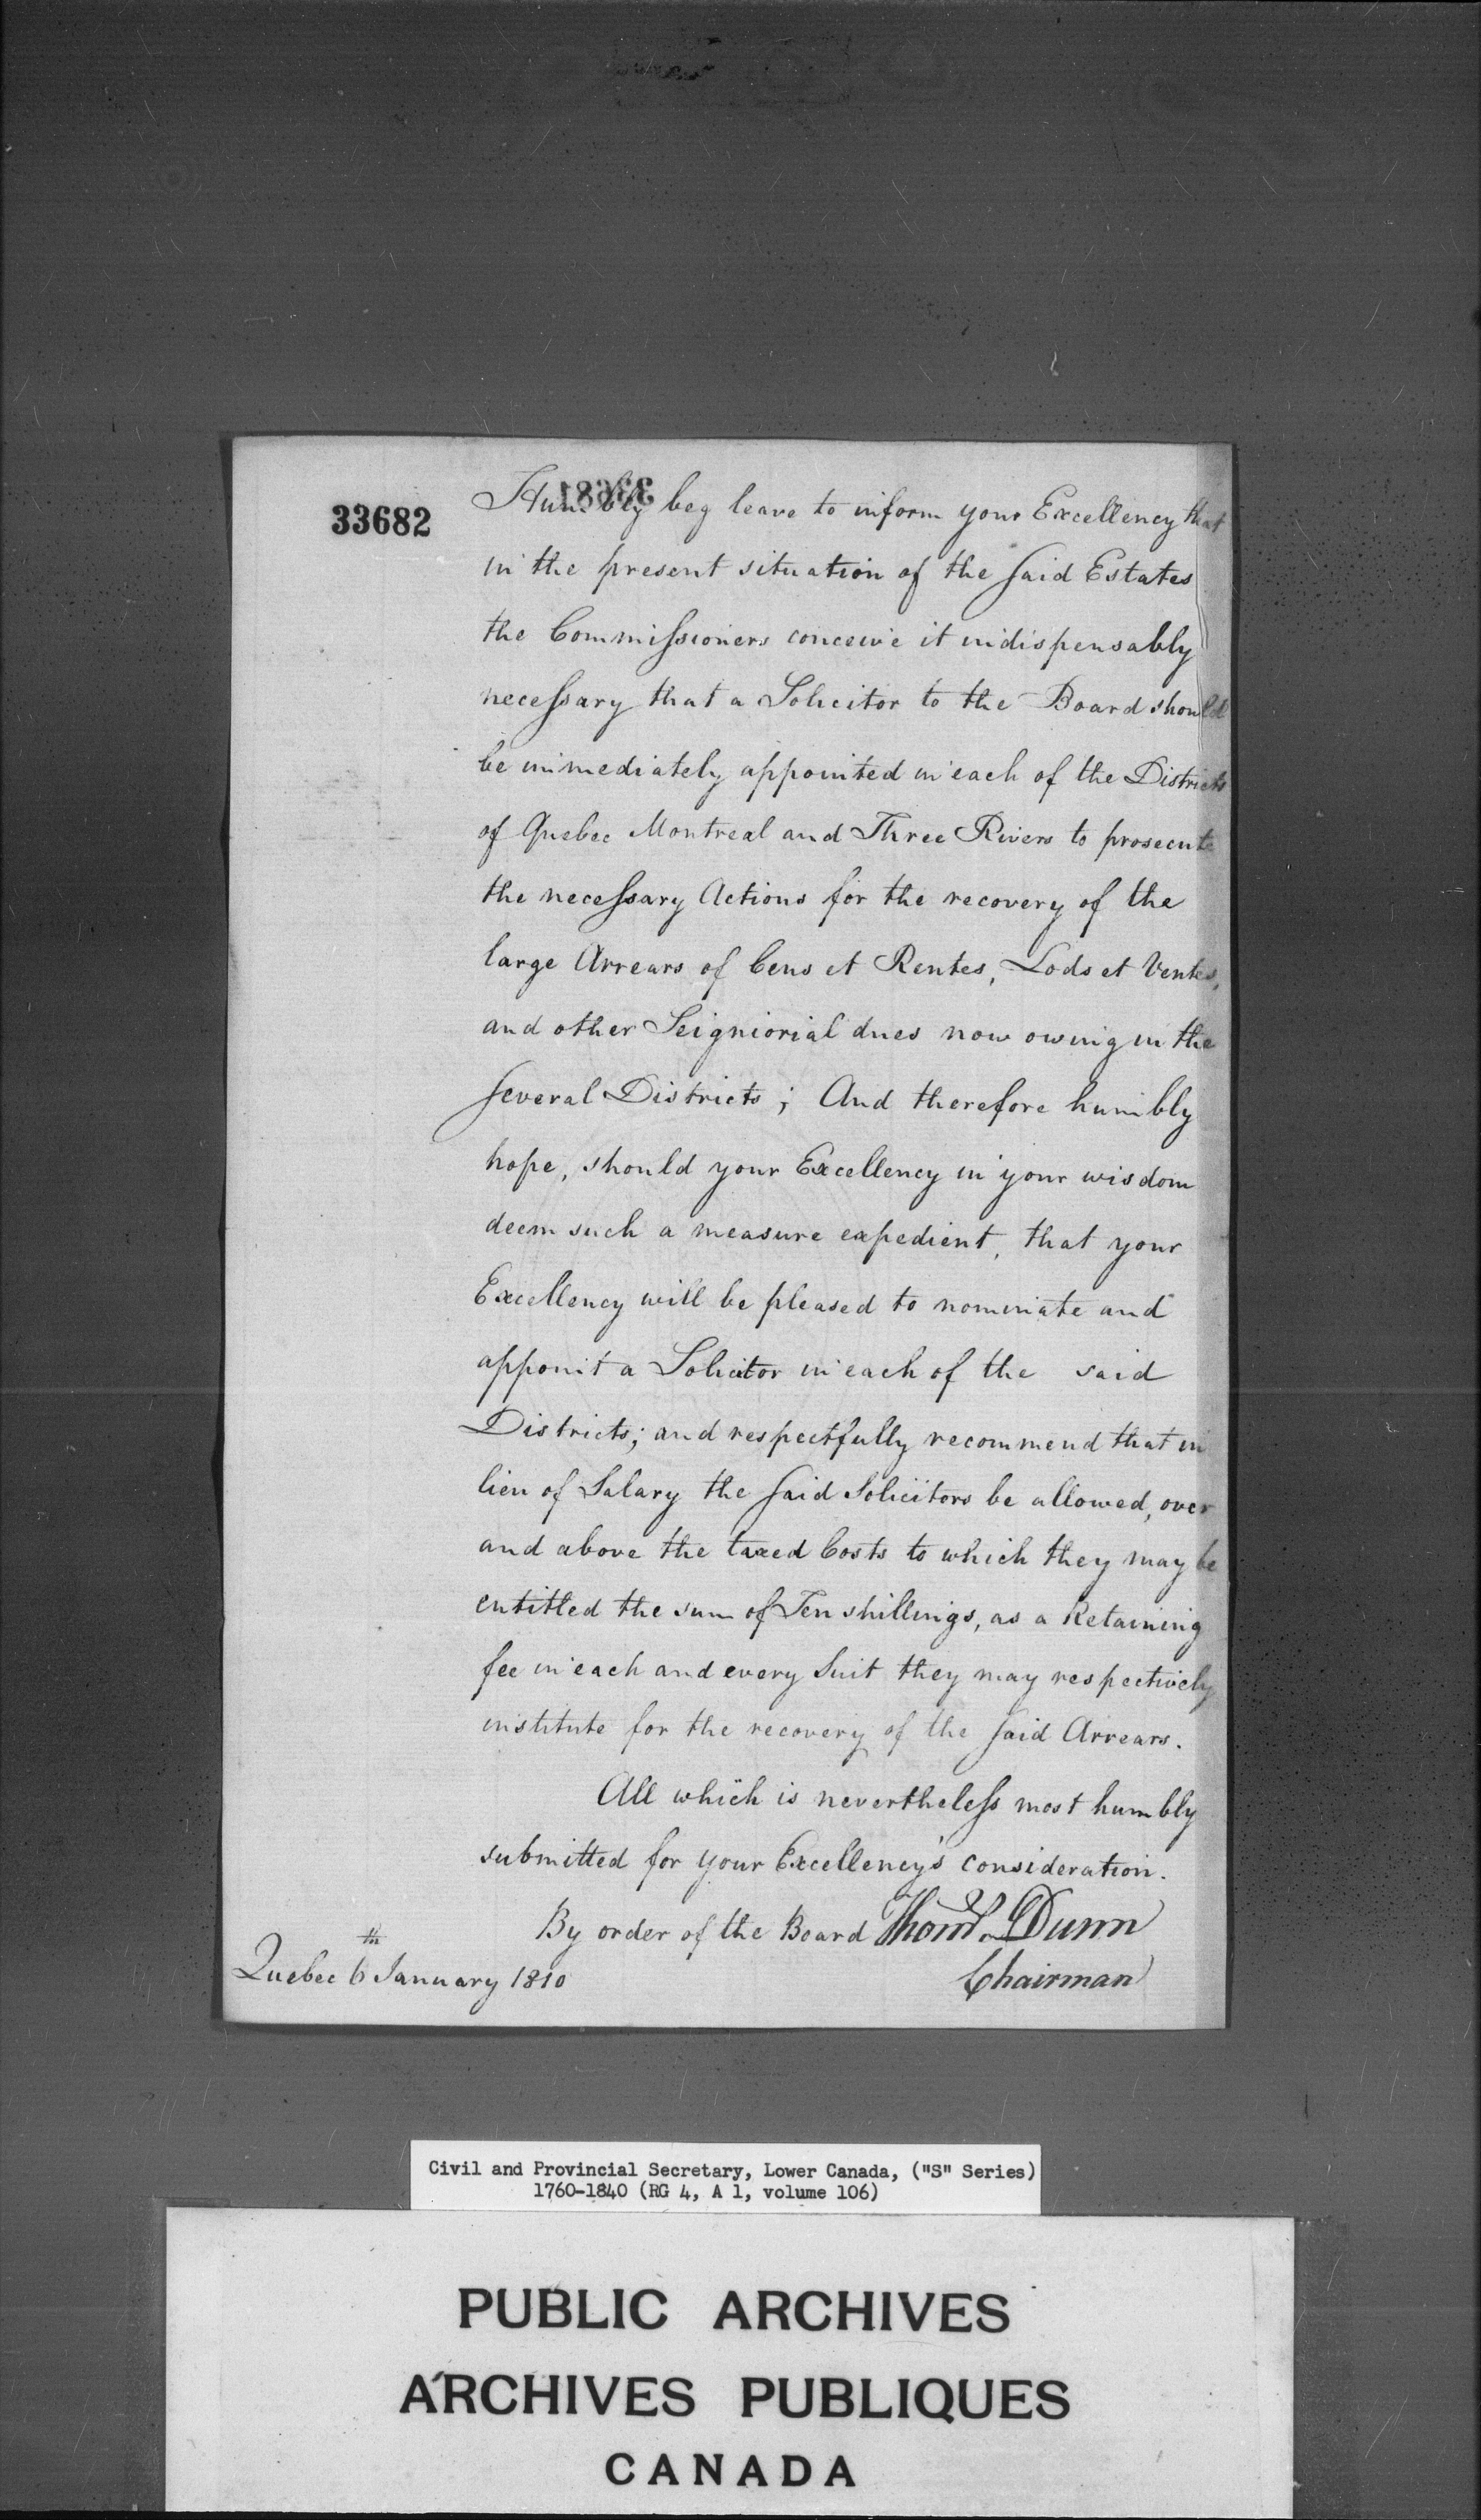 33682
33681
Humbly beg leave to inform your Excellency that
in the present situation of the said Estates
the Commissioners conceive it indispensably
necessary that a Solicitor to the Board should
be immediately appointed in each of the Districts
of Quebec Montreal and Three Rivers to prosecute
the necessary Actions for the recovery of the
large Arrears of Cens et Rentes, Lods et Ventes,
and other Seigniorial dues now owing in the
several Districts; And therefore humbly
hope, should your Excellency in your wisdom
deem such a measure expedient, that your
Excellency will be pleased to nominate and
appoint a Solicitor in each of the said
Districts; and respectfully recommend that in
lieu of Salary the said Solicitors be allowed, over
and above the taxed Costs to which they may be
entitled the sum of Ten shillings, as a Retaining
fee in each and every Suit they may respectively
institute for the recovery of the said Arrears.
All which is nevertheless most humbly
submitted for your Excellency's consideration.
By order of the Board Thoms Dunn
Chairman
Quebec 6th January 1810
Civil and Provincial Secretary, Lower Canada, ("S" Series)
1760-1840 (RG 4, A 1, volume 106)
PUBLIC ARCHIVES
ARCHIVES PUBLIQUES
CANADA